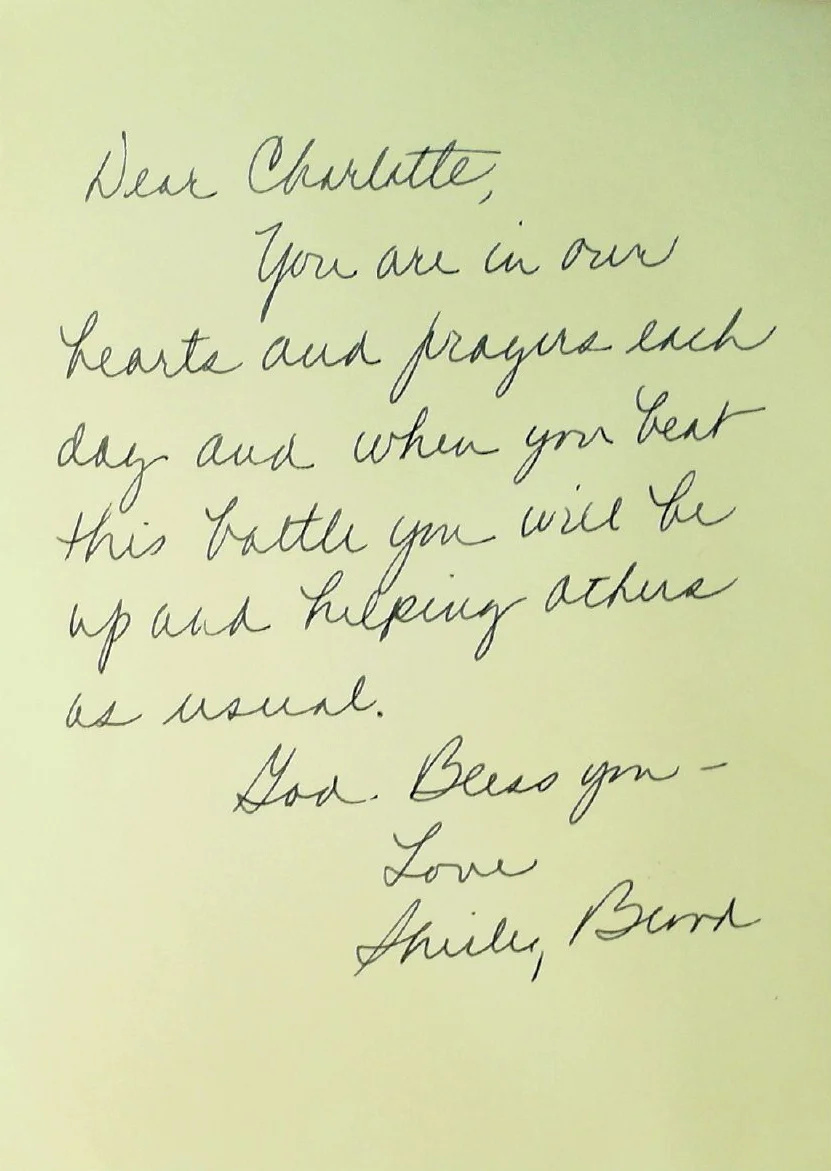 Dear Charlotte,
You are in our
hearts and prayers each
day and when you beat
this battle you will be
up and helping others
as usual.
God Bless you -
Love
Shirley